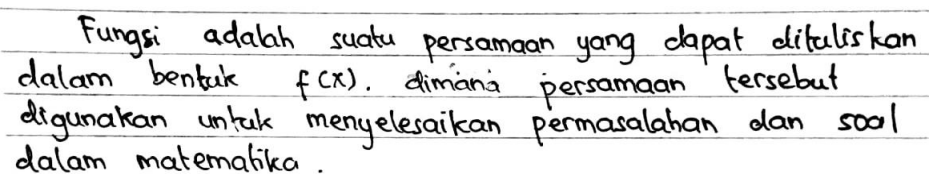 Fungsi adalah suatu persamaan yang dapat dituliskan
dalam bentuk f(x). dimana persamaan tersebut
digunakan untuk menyelesaikan permasalahan dan soal
dalam matematika.